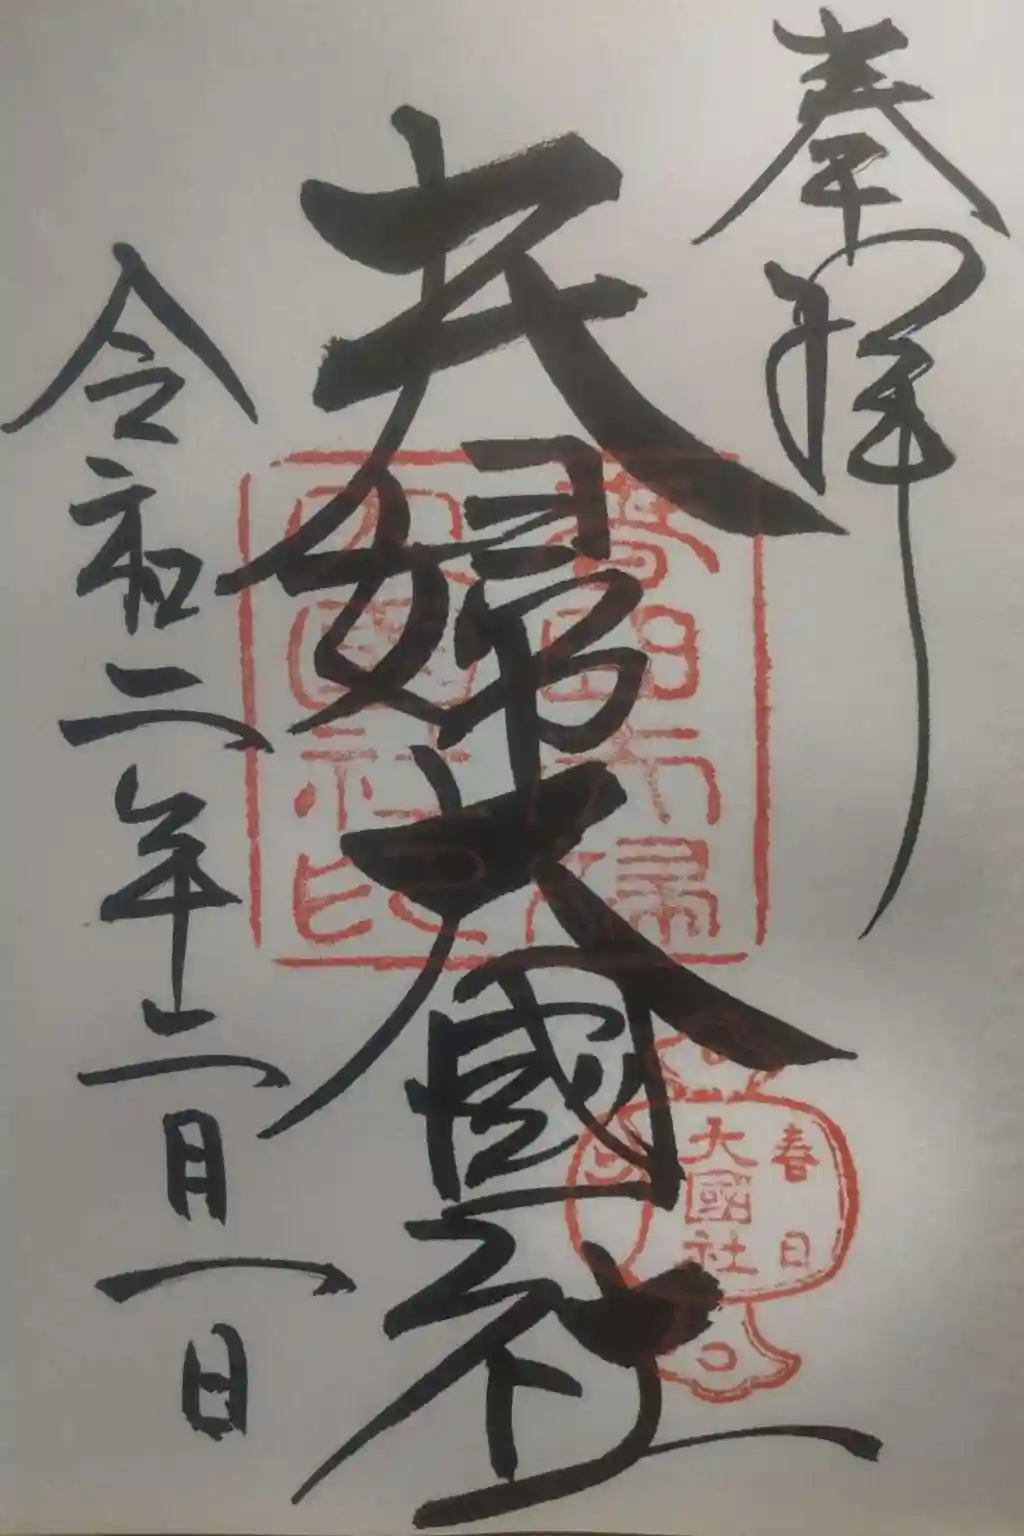 奉拝
夫婦大國社
令和二年十二月一日
春日
大國社